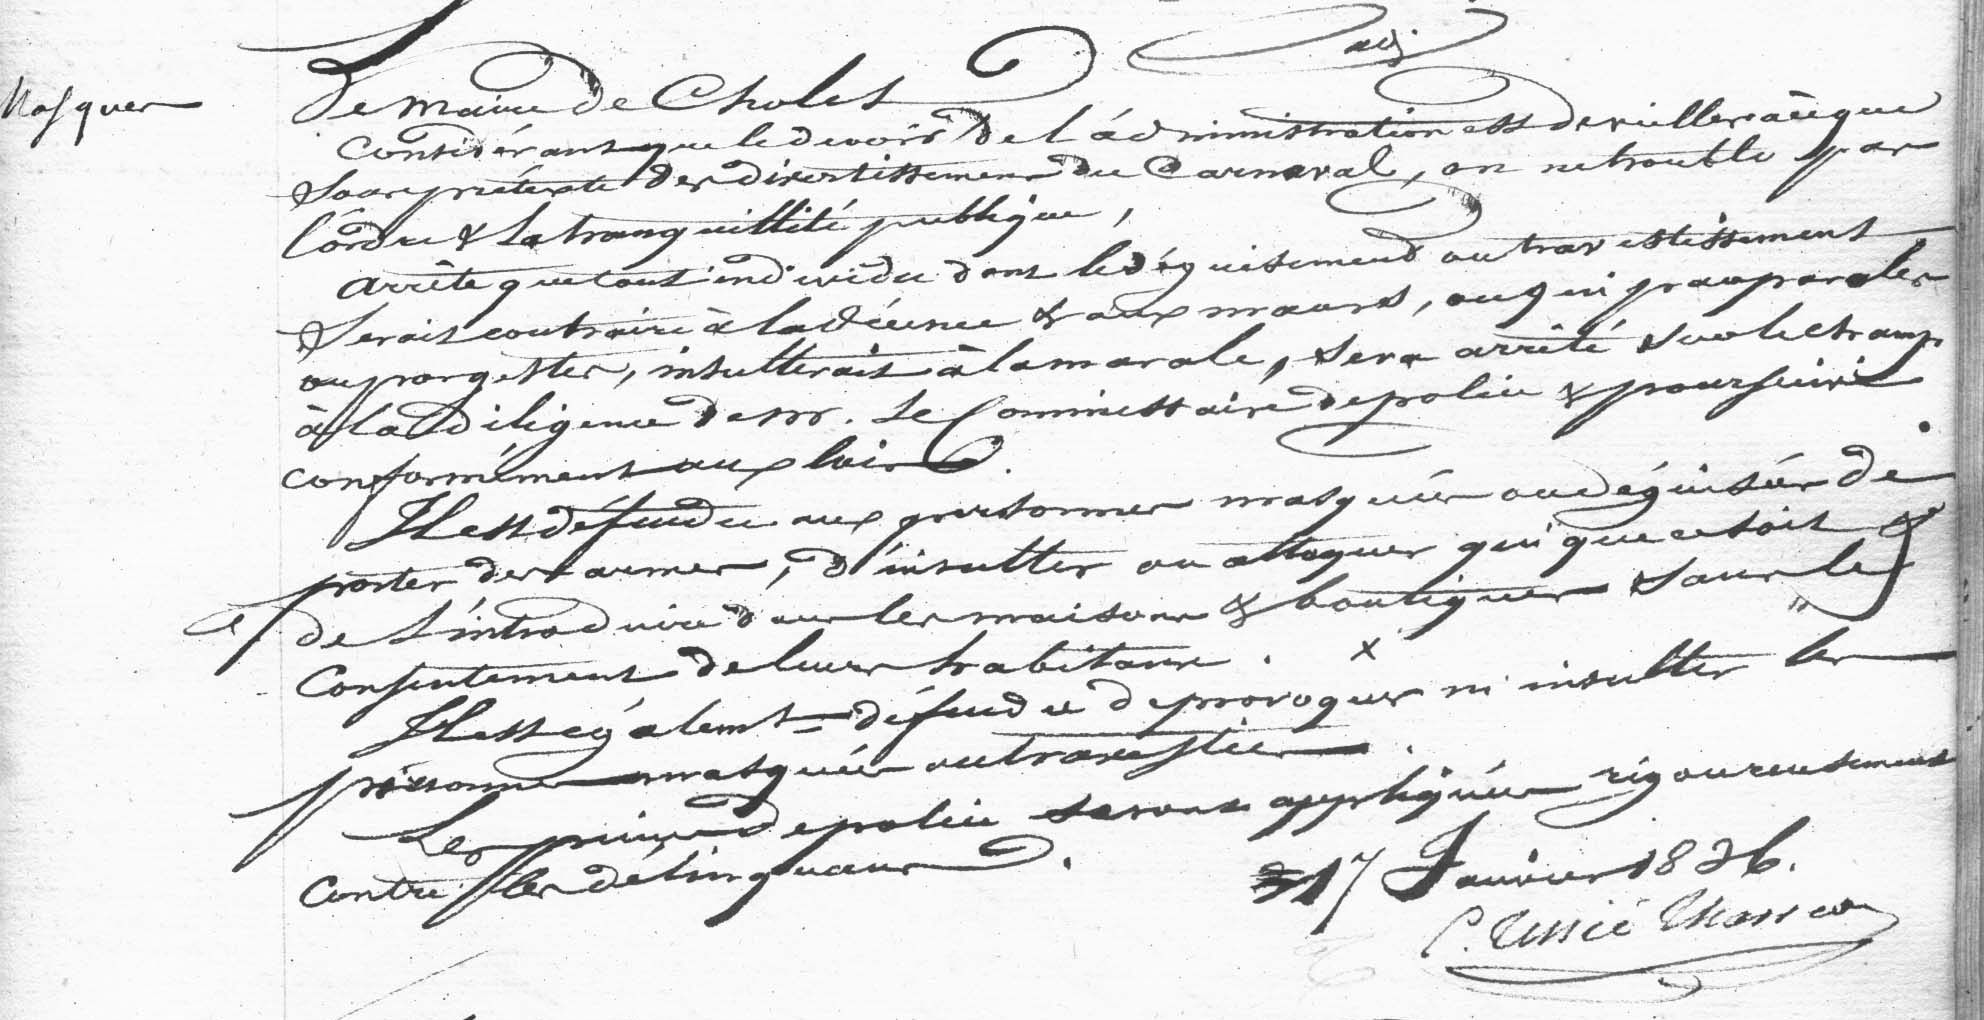 Masques
Le Maire de Cholet
Considérant que le devoir de l'administration est de veiller à ce que
sous prétexte des divertissemens du Carnaval, on ne trouble pas
l'ordre & la tranquillité publique,
arrête que tout individu dont le déguisement ou travestissement
serait contraire à la décence & aux mœurs, ou qui par paroles
ou par gestes, insulterait à la morale, sera arrêté sur le champ
à la diligence de M. le Commissaire de police & poursuivi
conformément aux lois.
Il est défendu aux personnes masquées ou déguisées de
porter des armes, d'insulter ou attaquer qui que ce soit &
de s'introduire dans les maisons & boutiques sans le
Consentement de leurs habitans. X
Il est égalemt défendu de provoquer ni insulter les
personnes masquées ou travesties.
Les peines de police seront appliquées rigoureusement
contre les délinquans.
17 Janvier 1826.